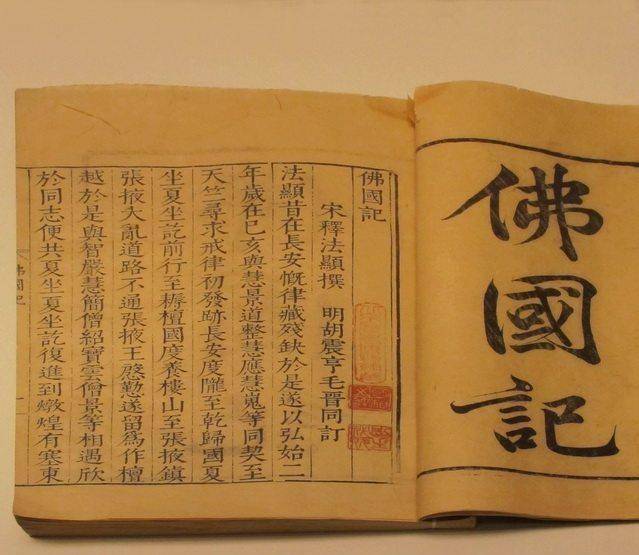 佛國記
佛國記
宋釋法顯撰　明胡震亨毛晉同訂
法顯昔在長安慨律藏殘缺於是遂以弘始二
年歲在巳亥與慧景道整慧應慧嵬等同契至
天竺尋求戒律初發跡長安度隴至乾歸國夏
坐夏坐訖前行至耨檀國度養樓山至張掖鎮
張掖大亂道路不通張掖王慇懃遂留爲作檀
越於是與智嚴慧簡僧紹寶雲僧景等相遇欣
於同志便共夏坐夏坐訖復進到燉煌有塞東
佛國記